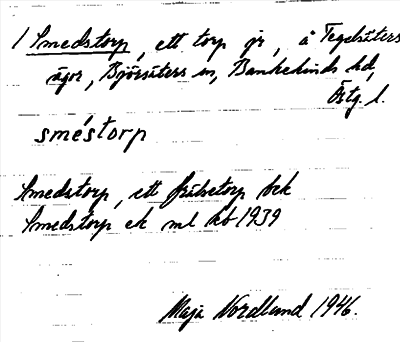 / Smedstorp, ett torp pr, å Tegelsäters
ägor, Björsäters sn, Bankekinds hd,
Östg. l.
smèstorp
Smedstorp, ett frälsetorp bek
Smedstorp ek ml kb 1939
Maja Nordlund 1946.